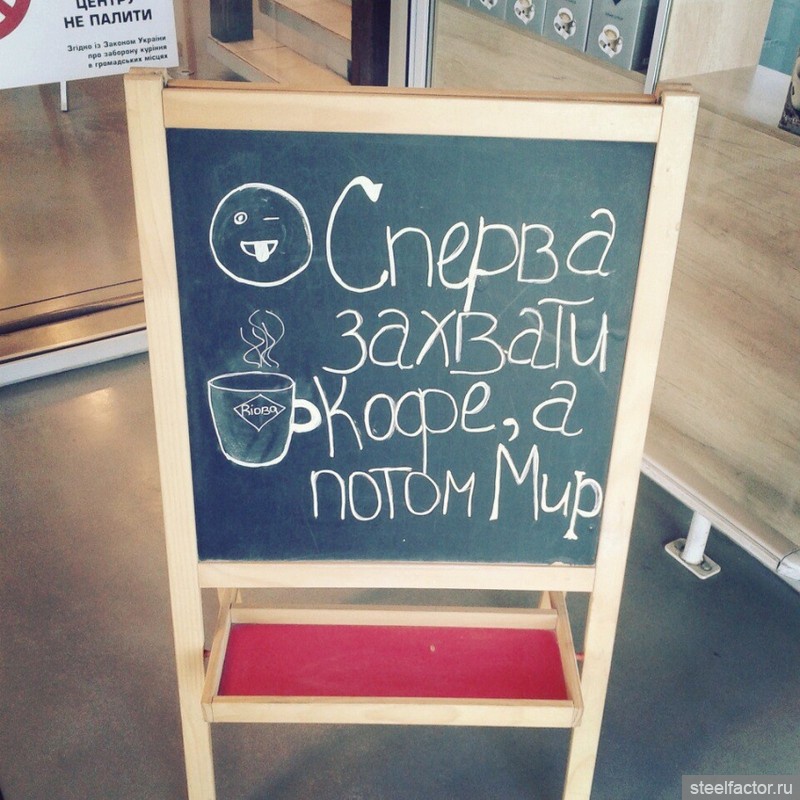 ЦЕНТРУ
НЕ ПАЛИТИ
Згідно із Законом України
про заборону куріння
в громадських місцях
Сперва
захвати
Кофе, а
потом Мир
Rioba
steelfactor.ru